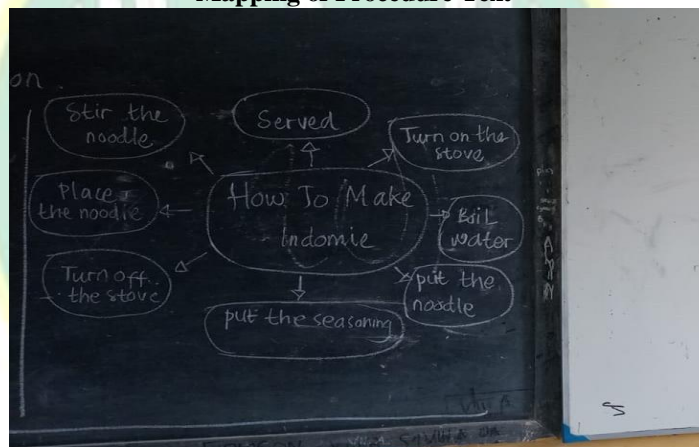 Mapping of Procedure Text
on
Stir the
noodle
Served
Turn on the
stove
How To Make
Indomie
Place
the noodle
Boil
water
Turn off
the stove
put the
noodle
put the seasoning